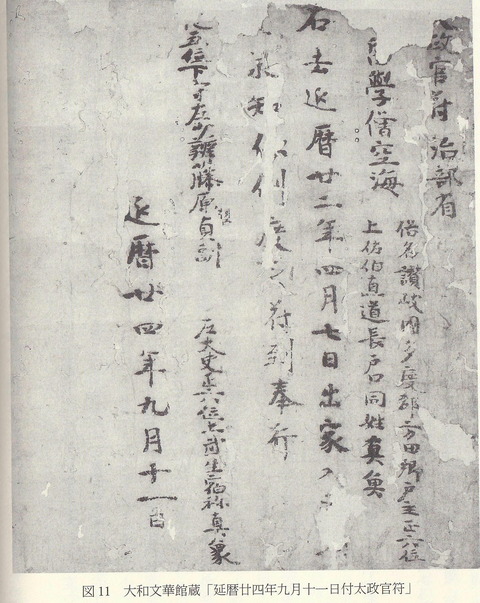 政官符 治部省
學僧空海
俗名讃岐國多度郡方田郷戸主正六位
上佐伯直道長戸口同姓真魚
右去延暦廿二年四月七日出家
承知 度之符到奉行
五位下 左少辨藤原貞副
左大史正六位上武生宿祢真象
延暦廿四年九月十一日
図11 大和文華館蔵「延暦廿四年九月十一日付太政官符」